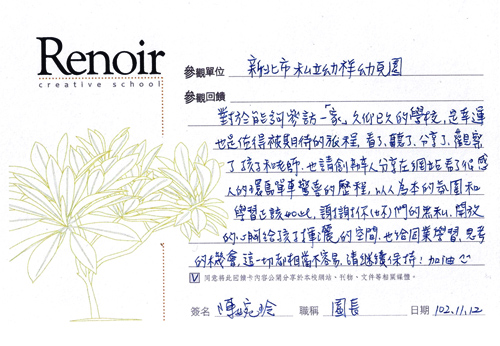 Renoir
creative school
參觀單位 新北市私立幼祥幼兒園
參觀回饋
對於能詞參訪「家久仰已久的學校,是幸運
也是值得被期待的旅程,看了、聽了、分享了、觀察
了孩子和老師,也請創辦人分享在網站看了很感
人的環島單車驚奇的歷程,以人為本的氛圍和
學習正該如此,謝謝你(妳)們的無私、開放
的心胸給孩子揮灑的空間,也給同業學習、思考
的機會,這一切都相當不容易,請繼續保持!加油
V 同意將此回饋卡內容公開分享於本校網站、刊物、文件等相關媒體。
簽名 陳婉玲 職稱 園長 日期 102.11.12